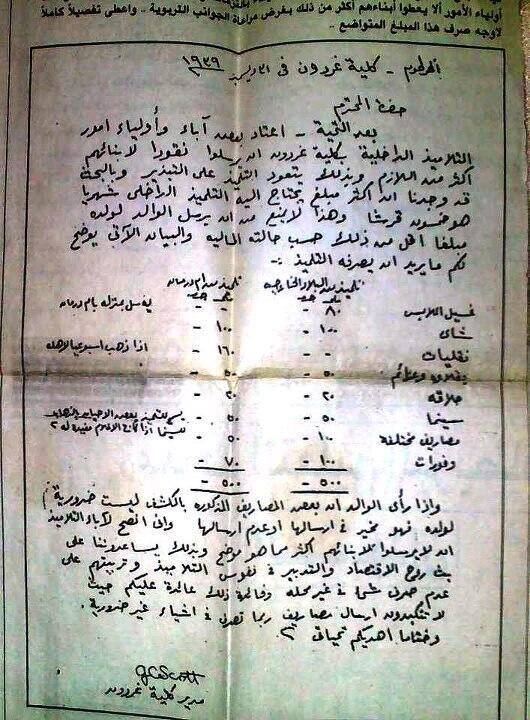 أولياء الأمور ألا يعطوا أبناءهم أكثر من ذلك بغرض مراعاة الجوانب التربوية .. واعطى تفصيلاً كاملاً
لاوجه صرف هذا المبلغ المتواضع .
الخرطوم - كلية غردون فى ٣١ ديسمبر ١٩٣٩
حضرة المحترم
بعد التحية - اعتاد بعض آباء وأولياء امور
التلاميذ الداخلية بكلية غردون ان يرسلوا نقودا لابنائهم
أكثر من اللازم وبذلك يتعود التلميذ على التبذير وبالبحث
قد وجدنا ان اكثر مبلغ يحتاج اليه التلميذ الداخلى شهريا
هو خمسون قرشا وهذا لا يمنع من ان يرسل الوالد لولده
مبلغا اقل من ذلك حسب حالته الماليه والبيان الآتى يوضح
لكم ما يريد ان يصرفه التلميذ :-
تلميذ من البلاد الخارجيه تلميذ من ام درمان
غسيل الملابس ٨٠ - يغسل بمنزله بام درمان
شاى ١٠٠ ١٠٠
نقليات - ١٦٠ اذا ذهب اسبوعيا لاهله
٥٠ ٥٠
حلاقه ٢٠ ٢٠
سينما ٥٠ ٥٠
مصاريف مختلفة ١٠٠ ٥٠
وفورات ١٠٠ ٧٠
٥٠٠ ٥٠٠
واذا رأى الوالد ان بعض المصاريف المذكوره بالكشف ليست ضرورية
لولده فهو مخير فى ارسالها او عدم ارسالها وانى انصح لآباء التلاميذ
ان لا يرسلوا لابنائهم أكثر مما هو موضح وبذلك يساعدوننا على
بث روح الاقتصاد والتدبير فى نفوس التلاميذ وتربيتهم على
عدم صرف شئ فى غير محله وفائدة ذلك عائدة عليكم حيث
لا تتكبدون ارسال مصاريف ربما تصرف فى اشياء غير ضرورية .
وختاما اهديكم تحياتى
مدير كلية غردون